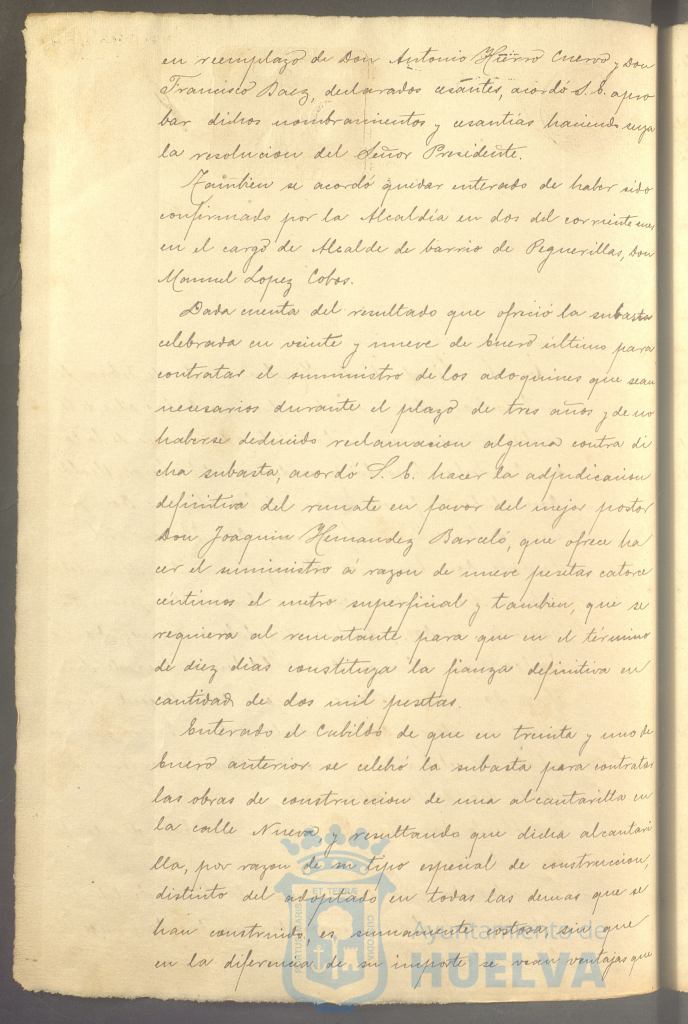 en reemplazo de Don Antonio Hierro Cuervo y Don
Francisco Baez, declarados cesantes, acordó S. E. apro
bar dichos nombramientos y cesantías haciendo suya
la resolucion del Señor Presidente.
Tambien se acordó quedar enterado de haber sido
confirmado por la Alcaldía en dos del corriente mes
en el cargo de Alcalde de barrio de Peguerillas, Don
Manuel Lopez Cobos.
Dada cuenta del resultado que ofreció la subasta
celebrada en veinte y nueve de Enero último para
contratar el suministro de los adoquines que sean
necesarios durante el plazo de tres años y de no
haberse deducido reclamacion alguna contra di
cha subasta, acordó S. E. hacer la adjudicacion
definitiva del remate en favor del mejor postor
Don Joaquin Hernandez Barceló, que ofrece ha
cer el suministro á razon de nueve pesetas catorce
céntimos el metro superficial y tambien, que se
requiera al rematante para que en el término
de diez dias constituya la fianza definitiva en
cantidad de dos mil pesetas.
Enterado el Cabildo de que en treinta y uno de
Enero anterior se celebró la subasta para contratar
las obras de construccion de una alcantarilla en
la calle Nueva, y resultando que dicha alcantari
lla, por razon de su tipo especial de construccion,
distinto del adoptado en todas las demas que se
han construido, es sumamente costosa, sin que
en la diferencia de su importe se vean ventajas que
Ayuntamiento de
HUELVA